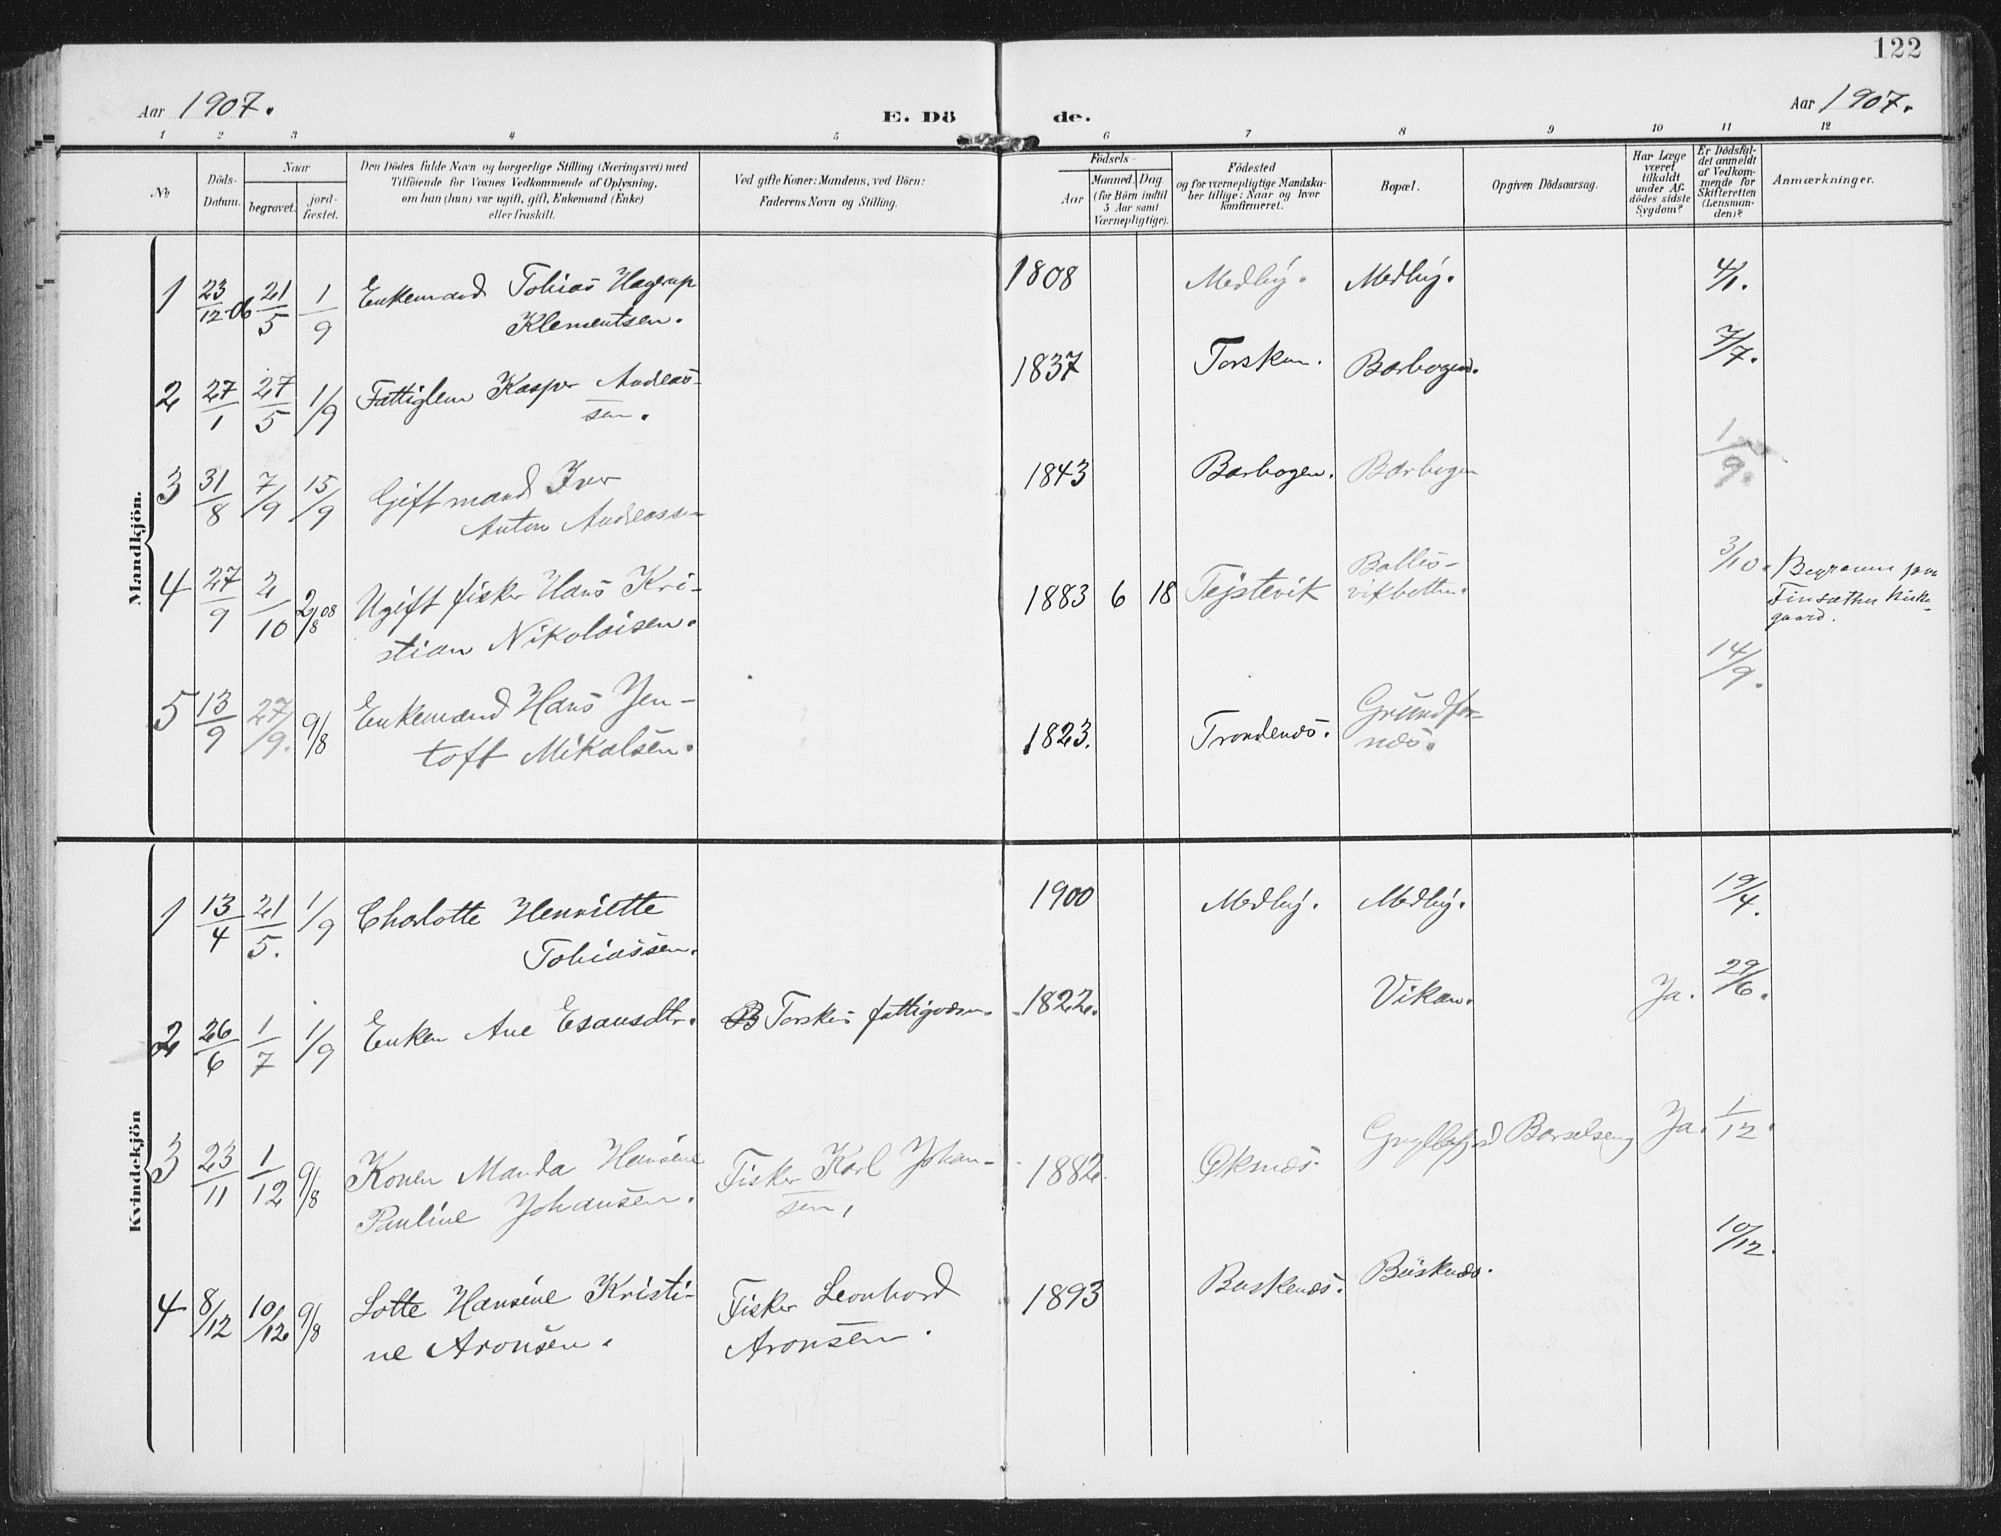 122
Aar 1907.
E. Dö de.
Aar 1907.
1 2 3 4 5 6 7 8 9 10 11 12
№
Döds-
Datum.
Naar
begravet.
jord-
fæstet.
Den Dödes fulde Navn og borgerlige Stilling (Næringsvei) med
Tilföiende for Voxnes Vedkommende af Oplysning,
om han (hun) var ugift, gift, Enkemand (Enke)
eller fraskilt.
Ved gifte Koner: Mandens, ved Börn:
Faderens Navn og Stilling.
Födsels-
Aar
Maaned. Dag.
(for Börn indtil
5 Aar samt
Værnepligtige).
Födested
og for værnepligtige Mandska-
ber tillige: Naar og hvor
konfirmeret.
Bopæl.
Opgiven Dödsaarsag.
Har Læge
været
tilkaldt
under Af-
dödes sidste
Sygdom?
Er Dödsfal-
det anmeldt
af Vedkom-
mende for
Skifteretten
(Lensman-
den)?
Anmærkninger.
Mandkjön.
1 23/12-06 21/5 1/9 Enkemand Tobias Hagerup 1808 Medby. Medby. 4/1.
Klementsen.
2 27/1 27/5 1/9 Fattiglem Kasper Andreas- 1837 Torsken. Barbogen. 7/7.
sen.
3 31/8 7/9 15/9 Giftmand Iver 1843 Barbogen. Barbogen 1/9.
Anton Andreassen
4 27/9 2/10 2/8 08 Ugift fisker Hans Kri- 1883 6 18 Tejstevik Balles- 3/10. Begraven paa
stian Nikolaisen. vikbotten. Finsæther Kirke-
gaard.
5 13/9 27/9. 9/8 Enkemand Hans Jen- 1823. Trondenæs. Grundfar- 14/9.
toft Mikalsen. næs.
Kvindekjön
1 13/4 21/5. 1/9 Charlotte Henriette 1900 Medby. Medby. 19/4.
Tobiassen.
2 26/6 1/7 1/9 Enken Ane Esausdtr. Torskens fattigvæsen. 1822. Vikan. Ja. 29/6.
3 23/11 1/12 9/8 Konen Manda Hansine Fisker Karl Johan- 1882. Øksnæs. Gryllefjord Barselseng Ja. 1/12.
Pauline Johansen. sen,
4 8/12 10/12 9/8 Lotte Hansine Kristi- Fisker Leonhard 1893 Buskenæs. Buskenæs. 10/12.
ne Aronsen. Aronsen.